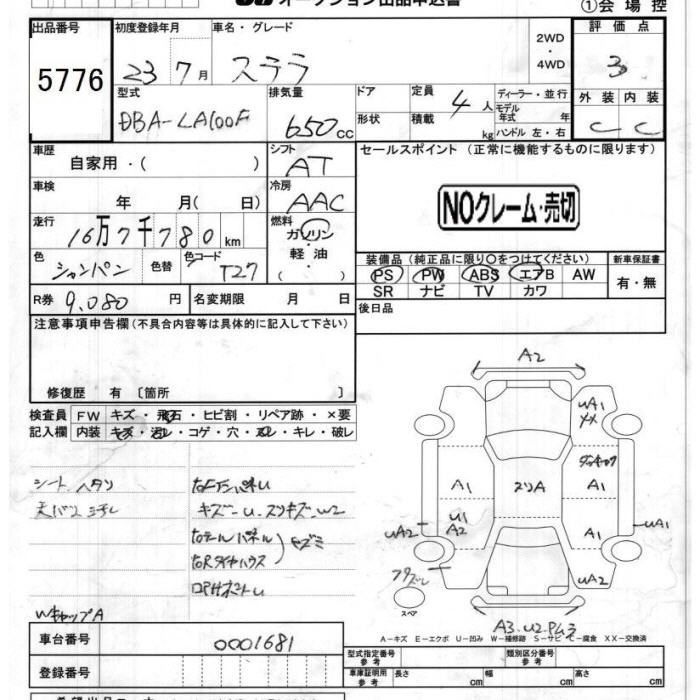 オークション出品申込書
①会場控
出品番号
5776
初度登録年月
23 7月
車名・グレード
ステラ
2WD
・
4WD
評価点
3
外装 内装
C C
型式
DBA-LA100F
排気量
650cc
ドア
形状
定員
4人
積載
kg
ディーラー・並行
モデル
年式 年
ハンドル 左・右
車歴
自家用・( )
シフト
AT
セールスポイント (正常に機能するものに限ります)
車検
年 月( 日)
冷房
AAC
NOクレーム・売切
走行
16万7千780km
燃料
ガソリン
・
軽油
( )
色
シャンパン
色替
色コード
T27
装備品(純正品に限り○をつけてください)
PS PW ABS エアB AW
SR ナビ TV カワ
新車保証書
有・無
R券 9,080円
名変期限 月 日
後日品
注意事項申告欄(不具合内容等は具体的に記入して下さい)
修復歴 有〔箇所 〕
検査員
記入欄
FW キズ・飛石・ヒビ割・リペア跡・×要
内装 キズ・汚れ・コゲ・穴・スレ・キレ・破レ
シート ヘタリ
WキャップA
A2
UA1
A1
スリA
A1
U1
A2
A1
UA2
UA1
UA2
スペア
A3.U2
A-キズ E-エクボ U-凹み W-補修跡 S-サビ C-腐食 XX-交換済
車台番号
0001681
登録番号
型式指定番号
参考
類別区分番号
参考
車庫証明用
参考
長さ cm
幅 cm
高さ cm